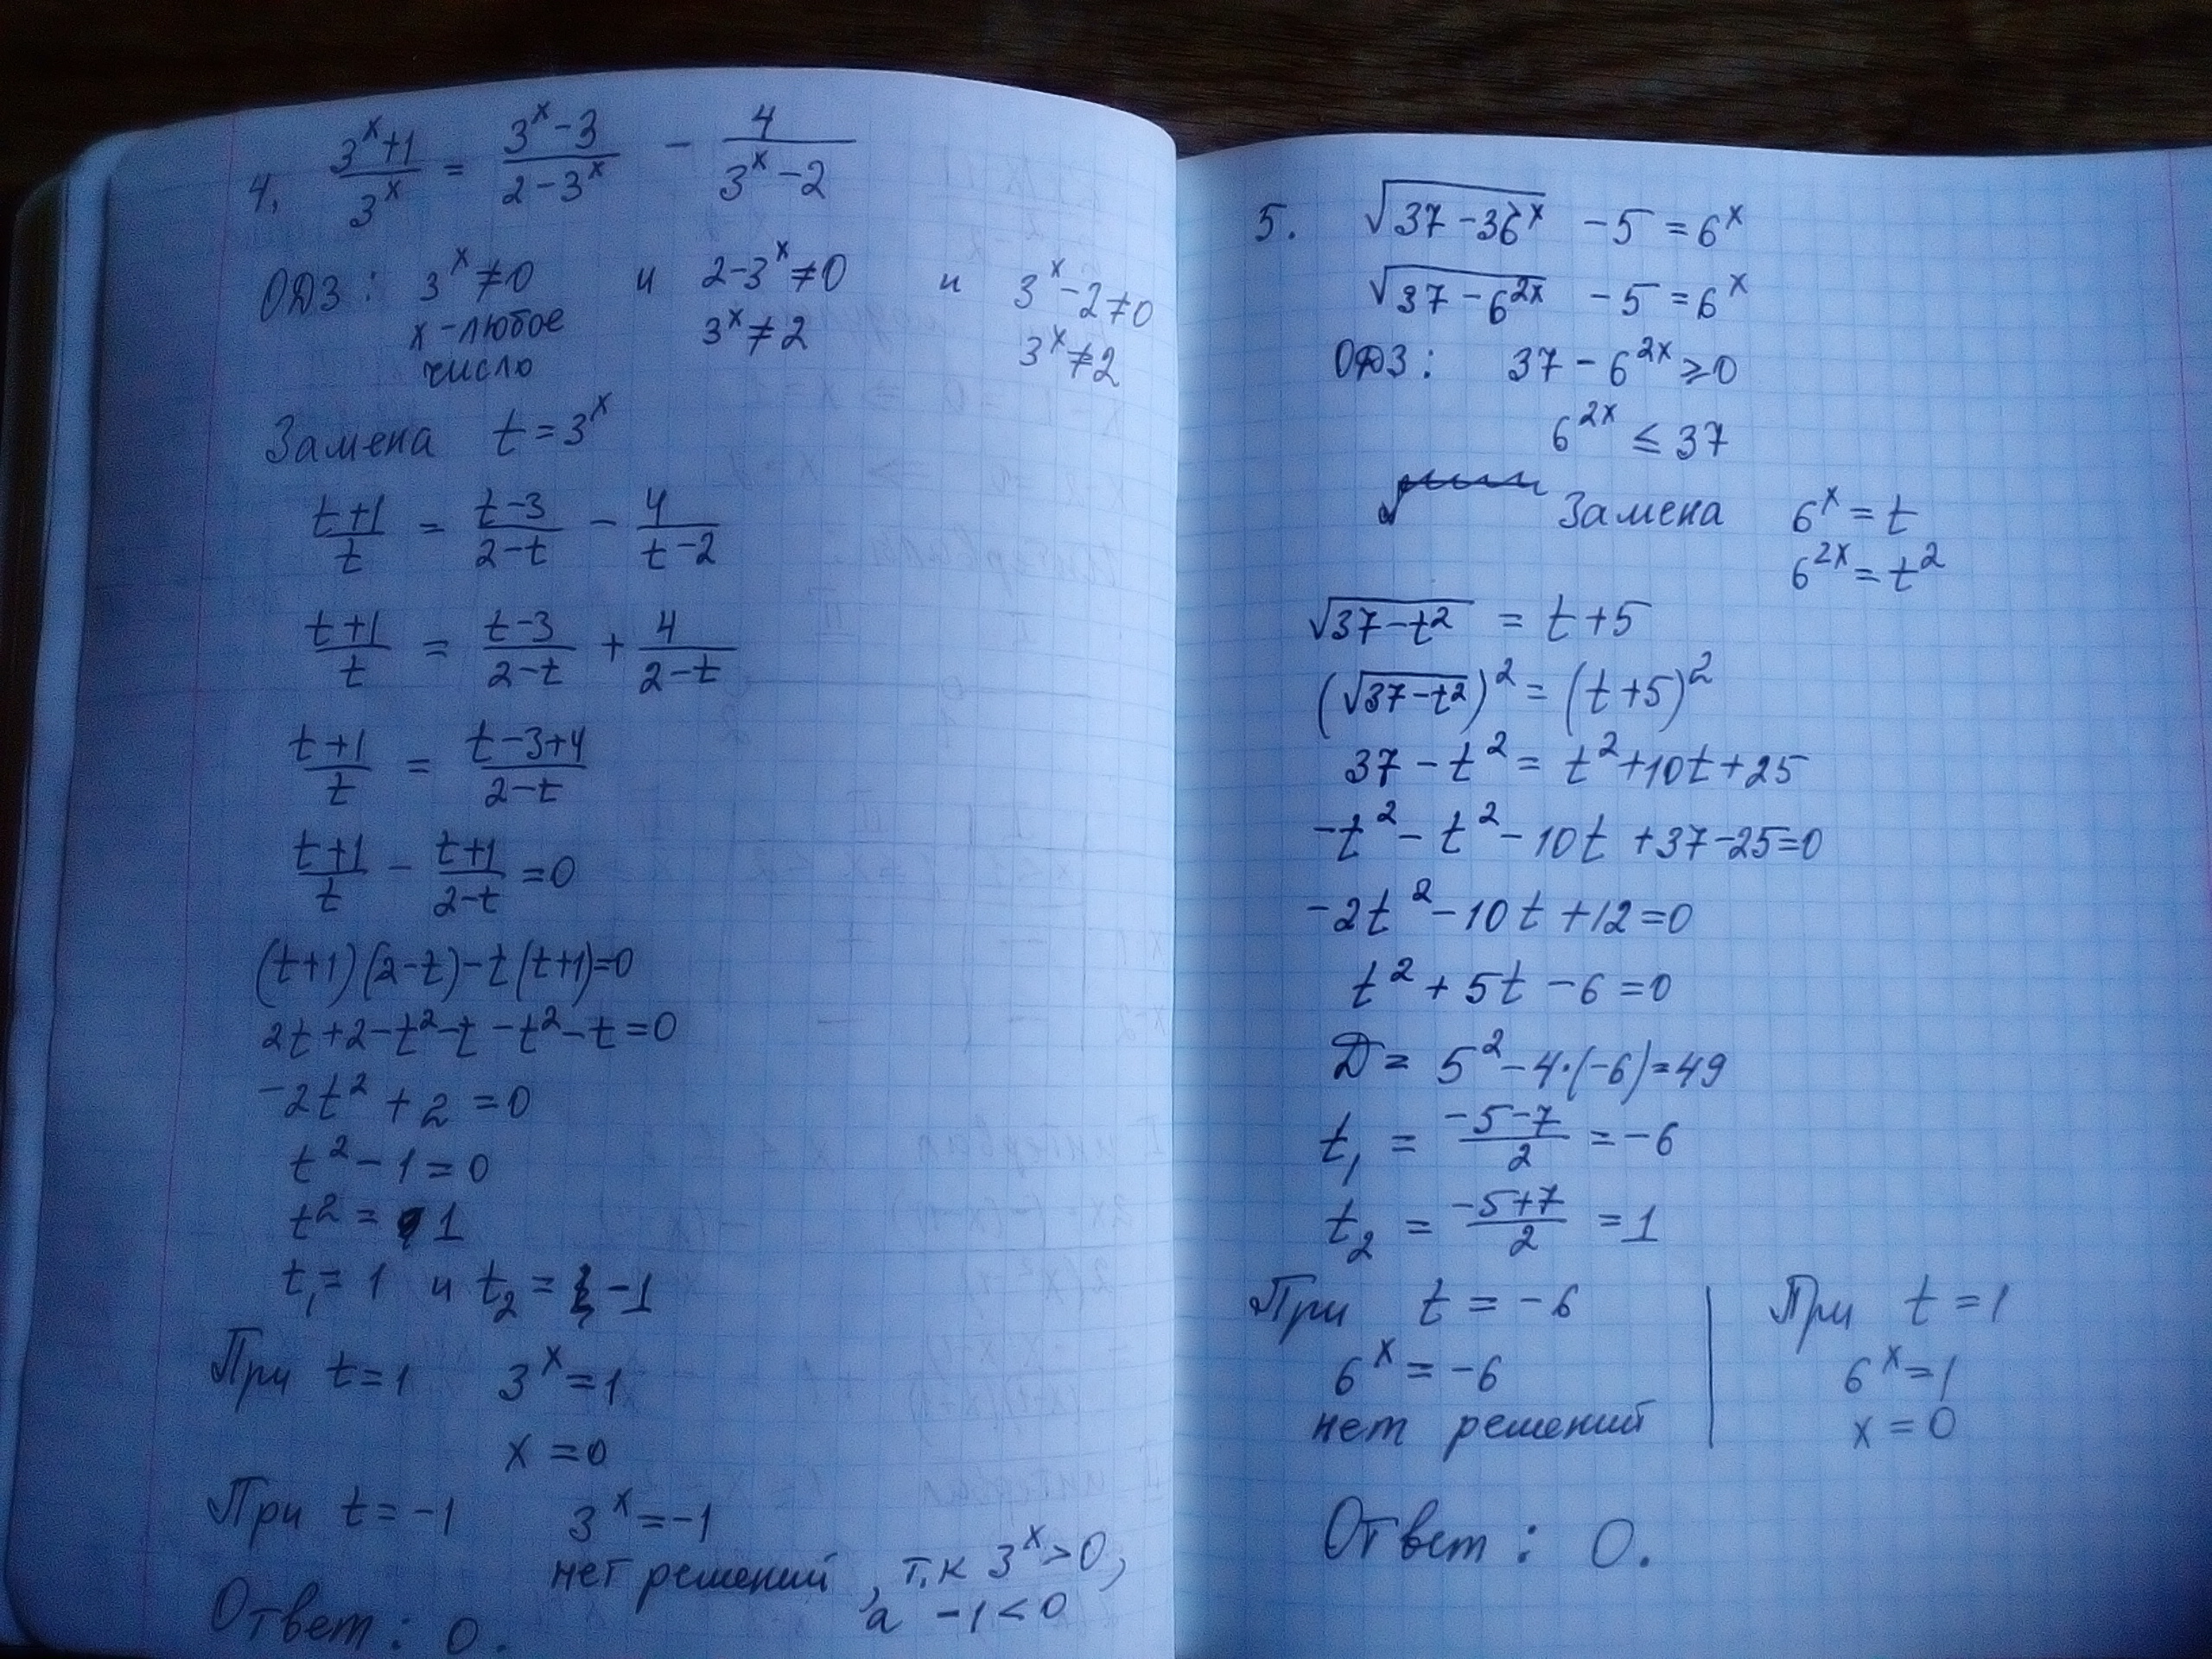 4. (3^x+1)/3^x = (3^x-3)/(2-3^x) - 4/(3^x-2)
ОДЗ: 3^x≠0 и 2-3^x≠0 и 3^x-2≠0
x-любое число 3^x≠2 3^x≠2
Замена t=3^x
(t+1)/t = (t-3)/(2-t) - 4/(t-2)
(t+1)/t = (t-3)/(2-t) + 4/(2-t)
(t+1)/t = (t-3+4)/(2-t)
(t+1)/t - (t+1)/(2-t) =0
(t+1)(2-t)-t(t+1)=0
2t+2-t²-t-t²-t=0
-2t²+2=0
t²-1=0
t²=1
t₁=1 и t₂=-1
При t=1 3^x=1
x=0
При t=-1 3^x=-1
нет решений, т.к 3^x>0,
а -1<0
Ответ: 0.
5. √(37-36^x) -5=6^x
√(37-6^(2x)) -5=6^x
ОДЗ: 37-6^(2x)≥0
6^(2x)≤37
Замена 6^x=t
6^(2x)=t²
√(37-t²) = t+5
(√(37-t²))²=(t+5)²
37-t²=t²+10t+25
-t²-t²-10t+37-25=0
-2t²-10t+12=0
t²+5t-6=0
D=5²-4·(-6)=49
t₁ = (-5-7)/2 =-6
t₂ = (-5+7)/2 =1
При t=-6 | При t=1
6^x=-6 | 6^x=1
нет решений | x=0
Ответ: 0.